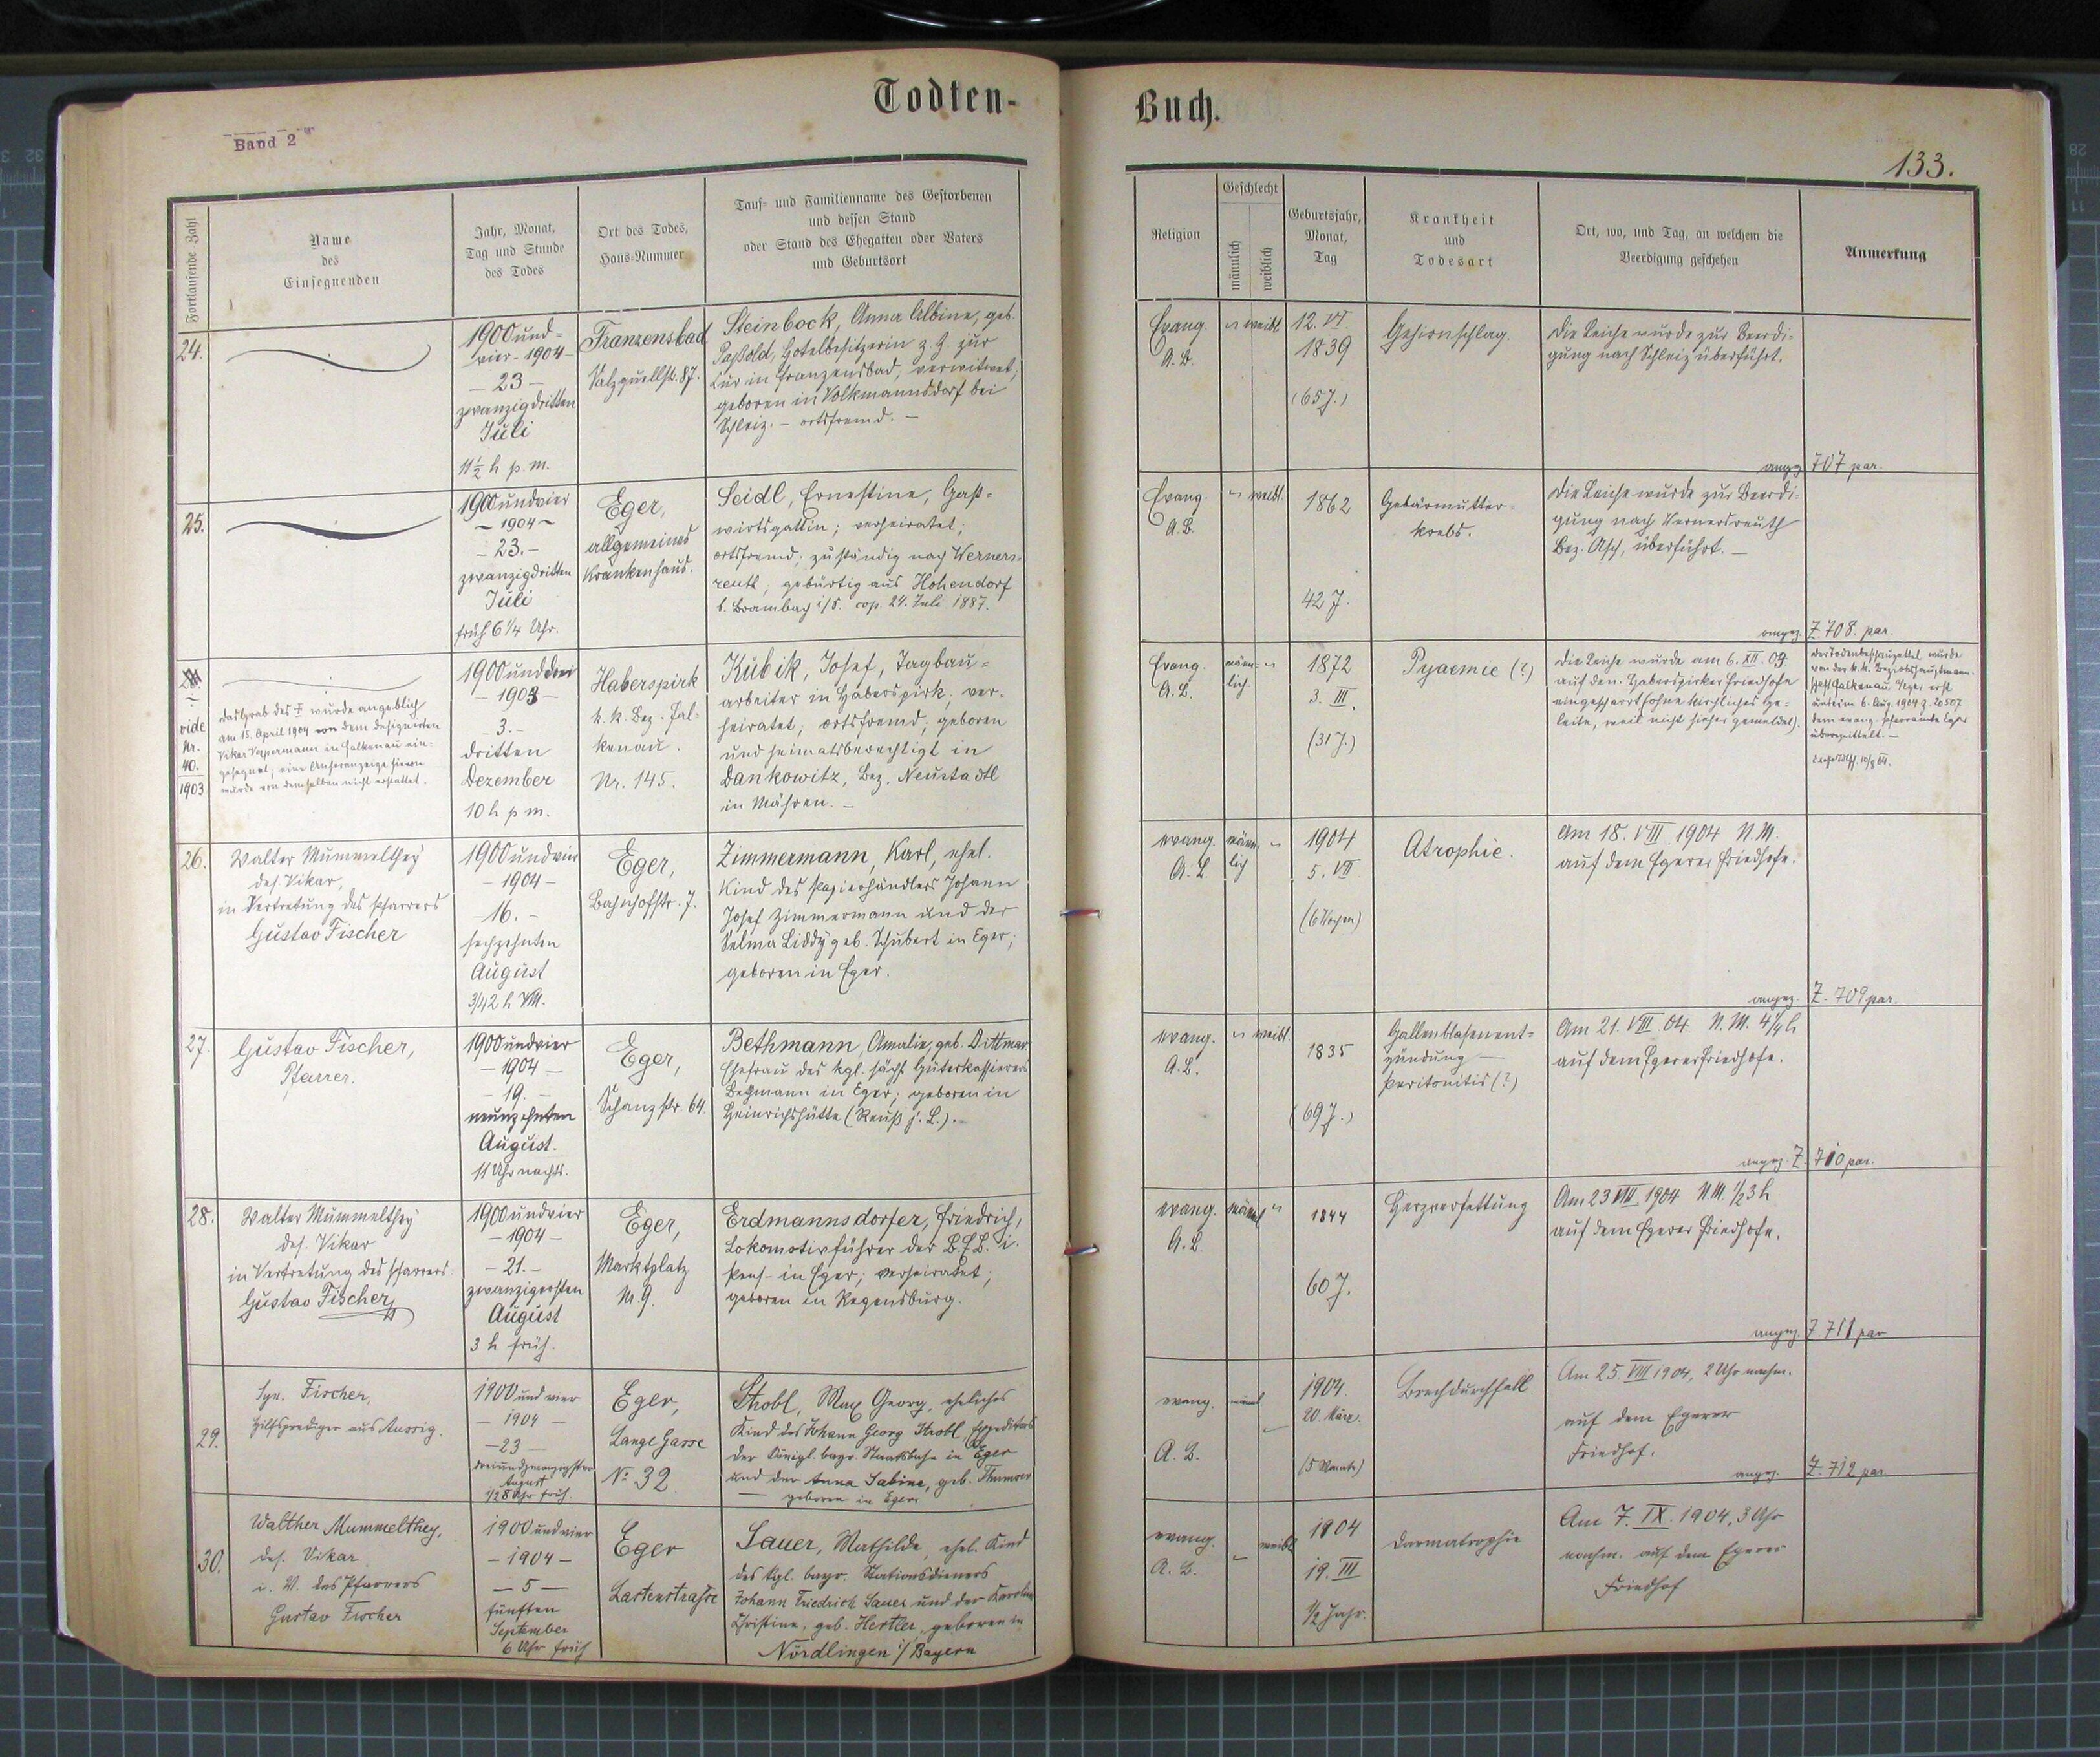 Todten-
Buch.
Band 2
133.
Fortlaufende Zahl
Name
des
Einsegnenden
Jahr, Monat,
Tag und Stunde
des Todes
Ort des Todes,
Haus-Nummer
Tauf- und Familienname des Gestorbenen
und dessen Stand
oder Stand des Ehegatten oder Vaters
und Geburtsort
Religion
Geschlecht
männlich
weiblich
Geburtsjahr,
Monat,
Tag
Krankheit
und
Todesart
Ort, wo, und Tag, an welchem die
Beerdigung geschehen
Anmerkung
24.
1900 und=
vier - 1904 -
- 23 -
zwanzigdritten
Juli
11 1/2 h p. m.
Franzensbad
Salzquellstr. 87.
Steinbock, Anna Albine, geb.
Paßold, Hotelbesitzerin z. Z. zur
Kur in Franzensbad, verwitwet,
geboren in Volkmannsdorf bei
Schleiz. - ortsfremd. -
Evang.
A. B.
" weibl.
12. VI.
1839
(65 J.)
Gehirnschlag.
Die Leiche wurde zur Beerdi=
gung nach Schleiz überführt.
angez. 707 par.
25.
1900 und vier
~ 1904 ~
- 23. -
zwanzigdritten
Juli
früh 6 1/4 Uhr.
Eger,
allgemeines
Krankenhaus.
Seidl, Ernestine, Gast=
wirtsgattin; verheiratet;
ortsfremd; zuständig nach Werners=
reuth; gebürtig aus Hohendorf
b. Brambach i/S. cop. 24. Juli 1887.
Evang.
A. B.
" weibl.
1862
42 J.
Gebärmutter=
krebs.
Die Leiche wurde zur Beerdi=
gung nach Wernersreuth
Bez. Asch, überführt. -
angez. Z. 708. par.
vide
Nr.
40.
1903
Das Grab des † wurde angeblich
am 15. April 1904 von dem designirten
Vikar in Falkenau ein=
gesegnet, eine Anheranzeige hievon
wurde von demselben nicht erstattet.
1900 und drei
- 1903 -
- 3. -
dritten
Dezember
10 h p m.
Haberspirk
k. k. Bez. Fal=
kenau.
Nr. 145.
Kubik, Josef, Tagbau=
arbeiter in Haberspirk, ver=
heiratet; ortsfremd; geboren
und heimatsberechtigt in
Dankowitz, Bez. Neustadtl
in Mähren. -
Evang.
A. B.
männ= "
lich.
1872
3. III.
(31 J.)
Pyaemie (?)
Die Leiche wurde am 6. XII. 03
auf den Haberspirker Friedhofe
eingescharrt (ohne kirchliches Ge=
leite, weil nicht hieher gemeldet).
Der Todenbeschauzettel wurde
von der k. k. Bezirkshauptmann=
schaft Falkenau, Eger erst
unterm 6. Aug. 1904 Z. 20507
dem evang. Pfarramte Eger
übermittelt. -
26.
Walter Mummelthey
des. Vikar,
in Vertretung des Pfarrers
Gustav Fischer
1900 und vier
- 1904 -
- 16. -
sechzehnten
August
3/4 2 h VM.
Eger,
Bahnhofstr. 7.
Zimmermann, Karl, ehel.
Kind des Papierhändlers Johann
Josef Zimmermann und der
Selma Liddy geb. Schubert in Eger;
geboren in Eger.
evang.
A. B.
männ= "
lich
1904
5. VII
(6 Wochen)
Atrophie.
Am 18. VIII 1904 N. M.
auf dem Egerer Friedhofe.
angez. Z. 709 par.
27.
Gustav Fischer,
Pfarrer.
1900 und vier
- 1904 -
- 19. -
neunzehnten
August.
11 Uhr nachts.
Eger,
Schanzstr. 64.
Bethmann, Amalie, geb. Dittmar
Ehefrau des kgl. sächs. Güterkassierers
Bethmann in Eger; geboren in
Heinrichshütte (Reuß j. L.). -
evang.
A. B.
" weibl.
1835
(69 J.)
Gallenblasenent=
zündung -
Peritonitis (?)
Am 21. VIII. 04. N. M. 4 1/4 h
auf dem Egerer Friedhofe.
angez. Z. 710 par.
28.
Walter Mummelthey
des. Vikar
in Vertretung des Pfarrers
Gustav Fischer
1900 und vier
- 1904 -
- 21. -
zwanzigersten
August
3 h früh.
Eger,
Marktplatz
Nr. 9.
Erdmannsdorfer, Friedrich,
Lokomotivführer der B. E. B. i.
Pens. in Eger; verheiratet;
geboren in Regensburg.
evang.
A. B.
männl "
1844
60 J.
Herzverfettung
Am 23 VIII. 1904 N. M. 1/2 3 h
auf dem Egerer Friedhofe.
angez. Z. 711 par
29.
Fischer,
Hilfsprediger aus Aussig.
1900 und vier
- 1904 -
- 23 -
dreiundzwanzigster
August
1/2 8 Uhr früh.
Eger,
Lange Gasse
No 32
Strobl, Max Georg, eheliches
Kind des Johann Georg Strobl, Expeditors
der königl. bayr. Staatsbahn in Eger
und der Anna Sabine, geb.
geboren in Eger.
evang.
A. B.
männl
1904.
20 März.
(5 Monate)
Brechdurchfall
Am 25. VIII 1904, 2 Uhr nachm.
auf dem Egerer
Friedhof.
angez. Z. 712 par
30.
Walther Mummelthey,
des. Vikar
i. V. des Pfarrers
Gustav Fischer
1900 und vier
- 1904 -
- 5 -
fünften
September
6 Uhr früh
Eger
Lartenstrasse
Sauer, Mathilde, ehel. Kind
des kgl. bayr. Stationsdieners
Johann Friedrich Sauer und der Karoline
Christine, geb. Hertler, geboren in
Nördlingen i/Bayern
evang.
A. B.
" weibl
1904
19. III
1/2 Jahr.
Darmatrophie
Am 7. IX. 1904, 3 Uhr
nachm. auf dem Egerer
Friedhof